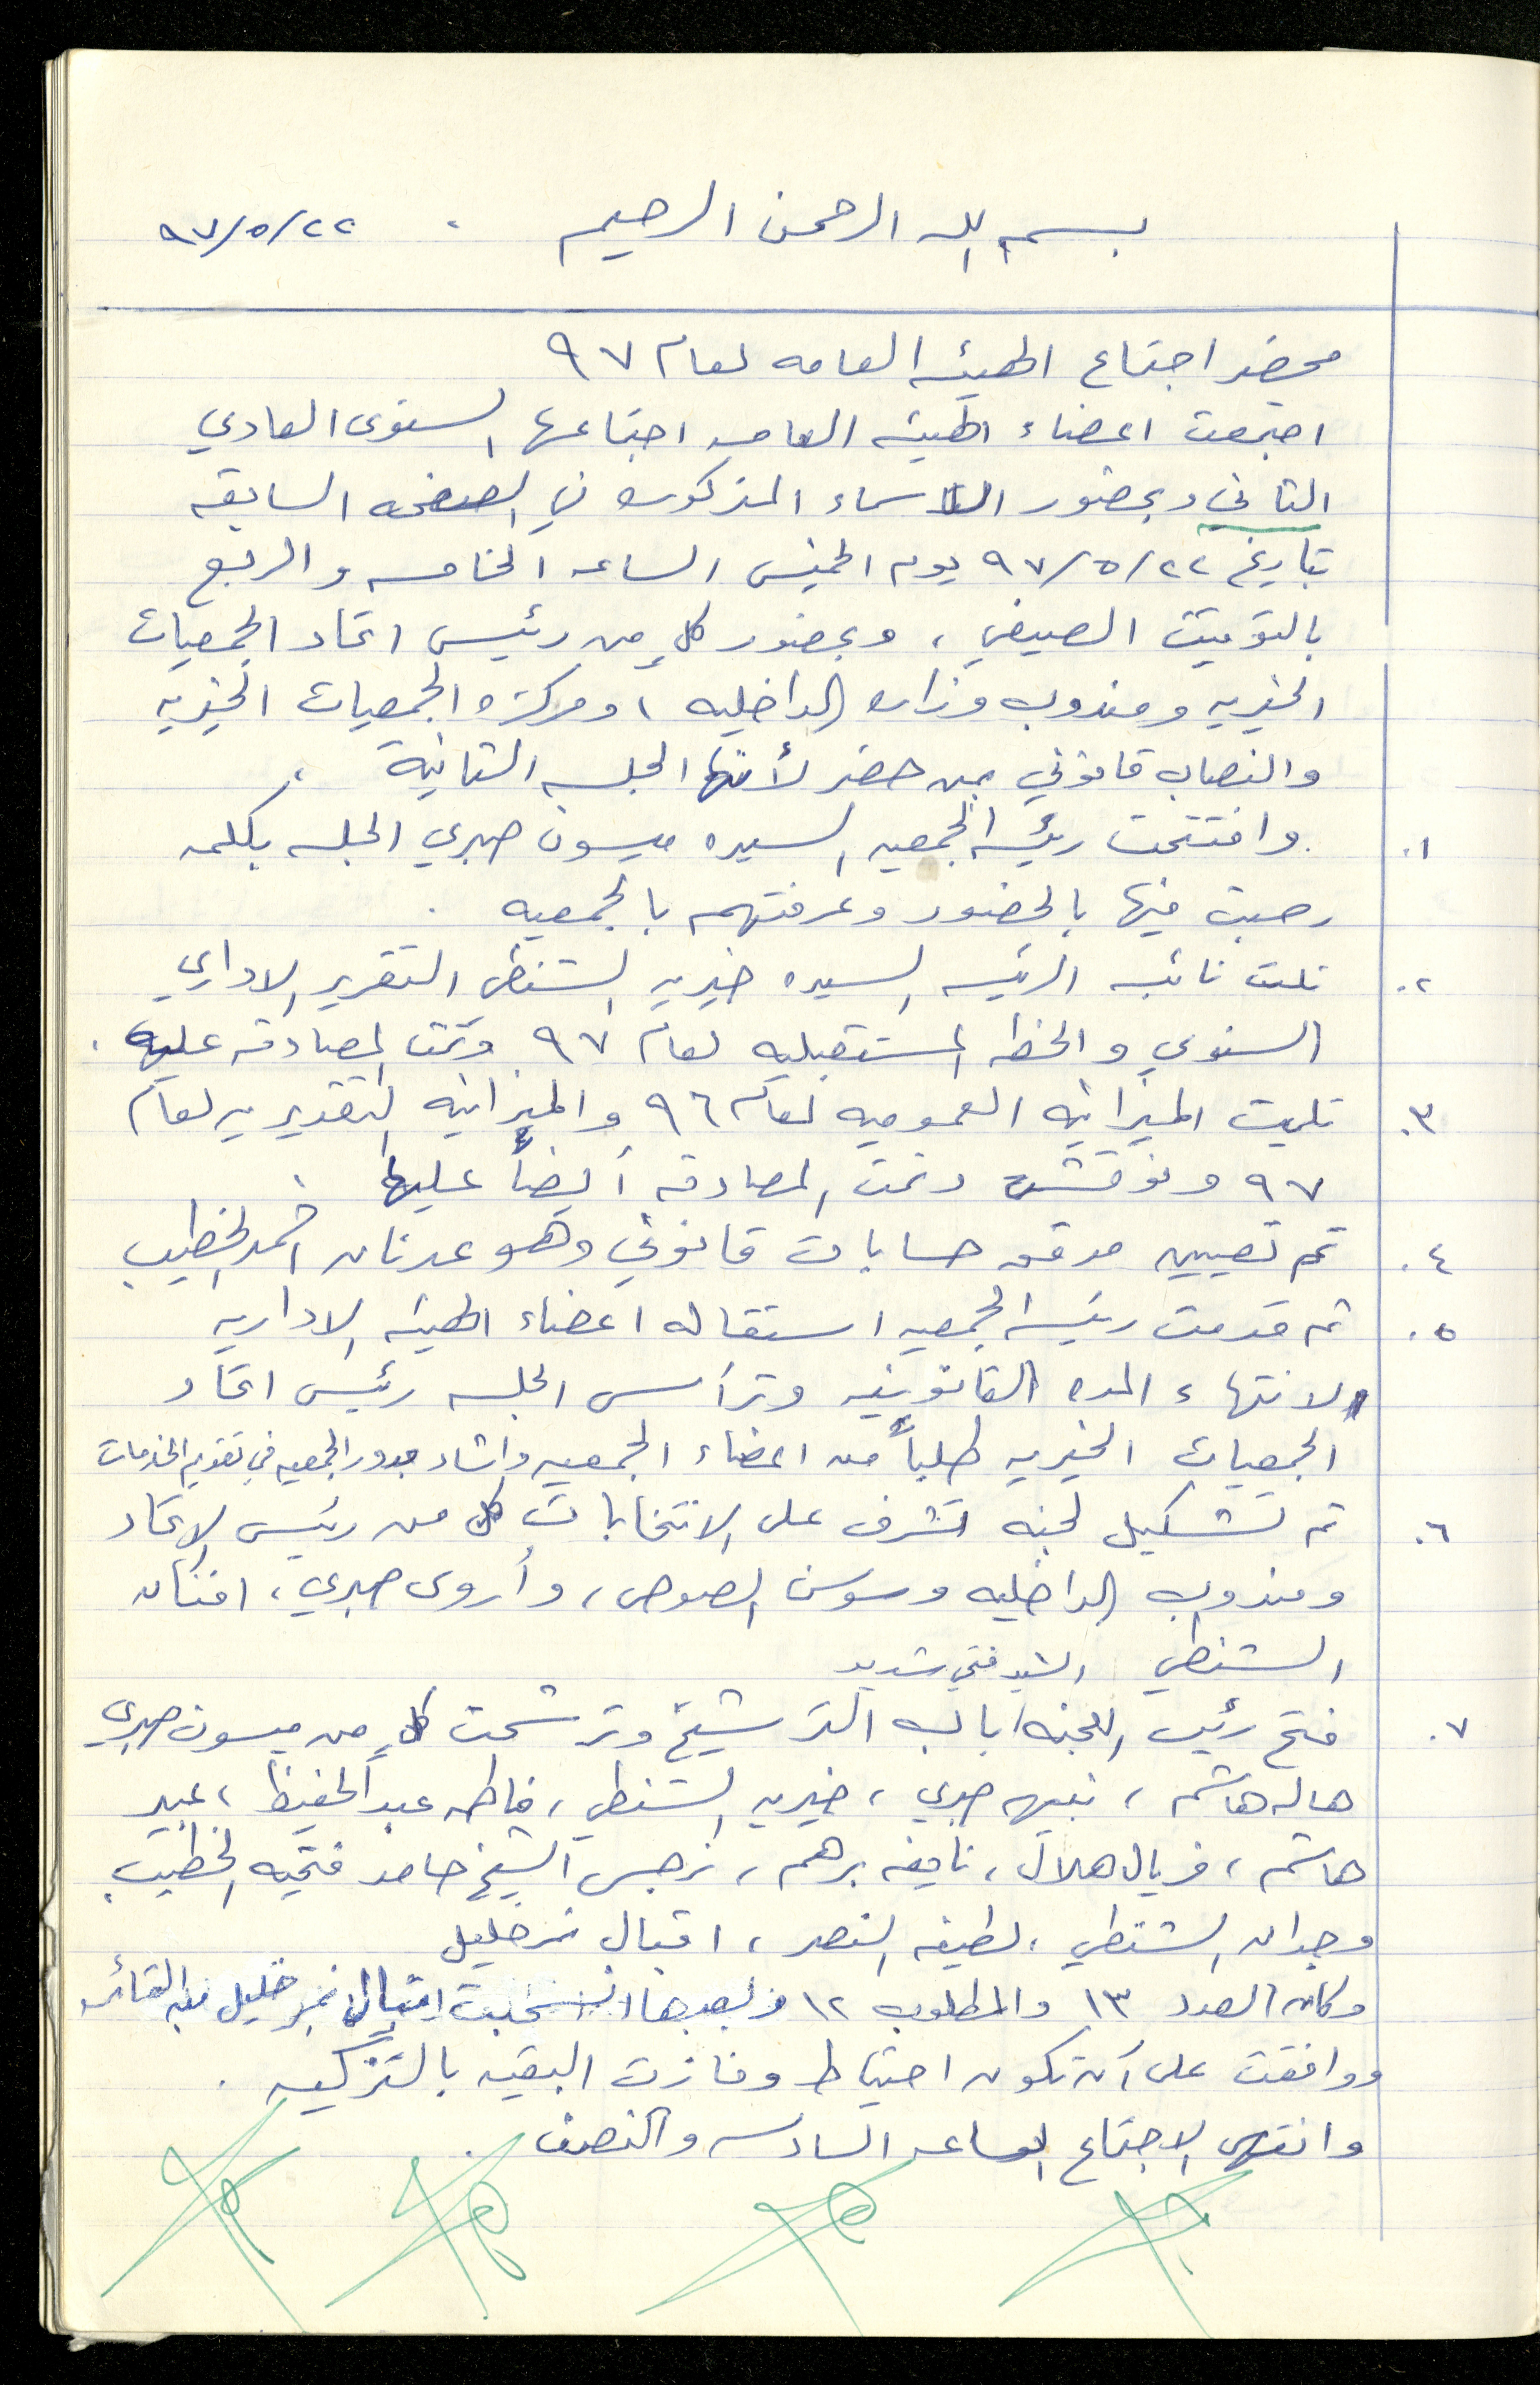 بسم الله الرحمن الرحيم . ٩٧/٥/٢٢
محضر اجتماع الهيئه العامه لعام ٩٧
اجتمعت اعضاء الهيئه العامه اجتماعها السنوى العادي
الثاني وبحضور الاسماء المذكوره في الصفحه السابقه
بتاريخ ٩٧/٥/٢٢ يوم الخميس الساعه الخامسه والربع
بالتوقيت الصيفي ، وبحضور كلٍ من رئيس اتحاد الجمعيات
الخيريه ومندوب وزاره الداخليه ، ومركزه الجمعيات الخيريه
والنصاب قانوني بمن حضر لأنها الجلسه الثانية .
١. وافتتحت رئيسه الجمعيه السيده ميسون صبري الجلسه بكلمه
رحبت فيها بالحضور وعرفتهم بالجمعيه .
٢. تلت نائبه الرئيسه السيده خيريه الشنطي التقرير الاداري
السنوي والخطه المستقبليه لعام ٩٧ وتمت المصادقه عليه .
٣. تليت الميزانيه العموميه لعام ٩٦ والميزانيه التقديريه لعام
٩٧ ونوقشت وتمت المصادقه أيضاً عليها .
٤. تم تعيين مدقق حسابات قانوني وهو عدنان احمد الخطيب
٥. ثم قدمت رئيسه الجمعيه استقاله اعضاء الهيئه الاداريه
لانتهاء المده القانونيه وترأس الجلسه رئيس اتحاد
الجمعيات الخيريه طلباً من اعضاء الجمعيه واشاد بدور الجمعيه في تقديم الخدمات
٦. تم تشكيل لجنه تشرف على الانتخابات كل من رئيس الاتحاد
ومندوب الداخليه وسوسن الصوص ، وأروى صبري ، افنان
الشنطي السيد فتحي شديد
٧. فتح رئيس اللجنه باب الترشيح وترشحت كلٍ من ميسون صبري
هاله هاشم ، نبيهه صبري ، خيريه الشنطي ، فاطمه عبد الحفيظ ، عبير
هاشم ، فريال هلال ، نايفه برهم ، نرجس الشيخ حامد فتحيه الخطيب
وجدان الشنطي ، لطيفه النصر ، اقبال نمر خليل
وكان العدد ١٣ والمطلوب ١٢ وبعدها انسحبت اقبال نمر خليل من القائمه
ووافقت على أن تكون احتياط وفازت البقيه بالتزكيه .
وانتهى الاجتماع الساعه السادسه والنصف .